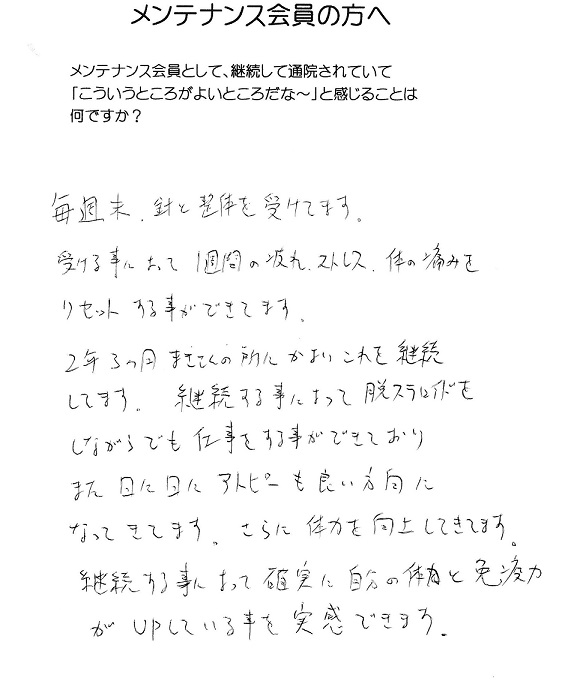 メンテナンス会員の方へ
メンテナンス会員として、継続して通院されていて
「こういうところがよいところだな～」と感じることは
何ですか？
毎週末、針と整体を受けてます。
受ける事によって1週間の疲れ、ストレス、体の痛みを
リセットする事ができてます、
2年3ヶ月まきさんの所にかよいこれを継続
してます。継続する事によって脱ステロイドを
しながらでも仕事をする事ができており
また日に日にアトピーも良い方向に
なってきてます。さらに体力を向上してきてます。
継続する事によって確実に自分の体力と免疫力
がUPしている事を実感できます。